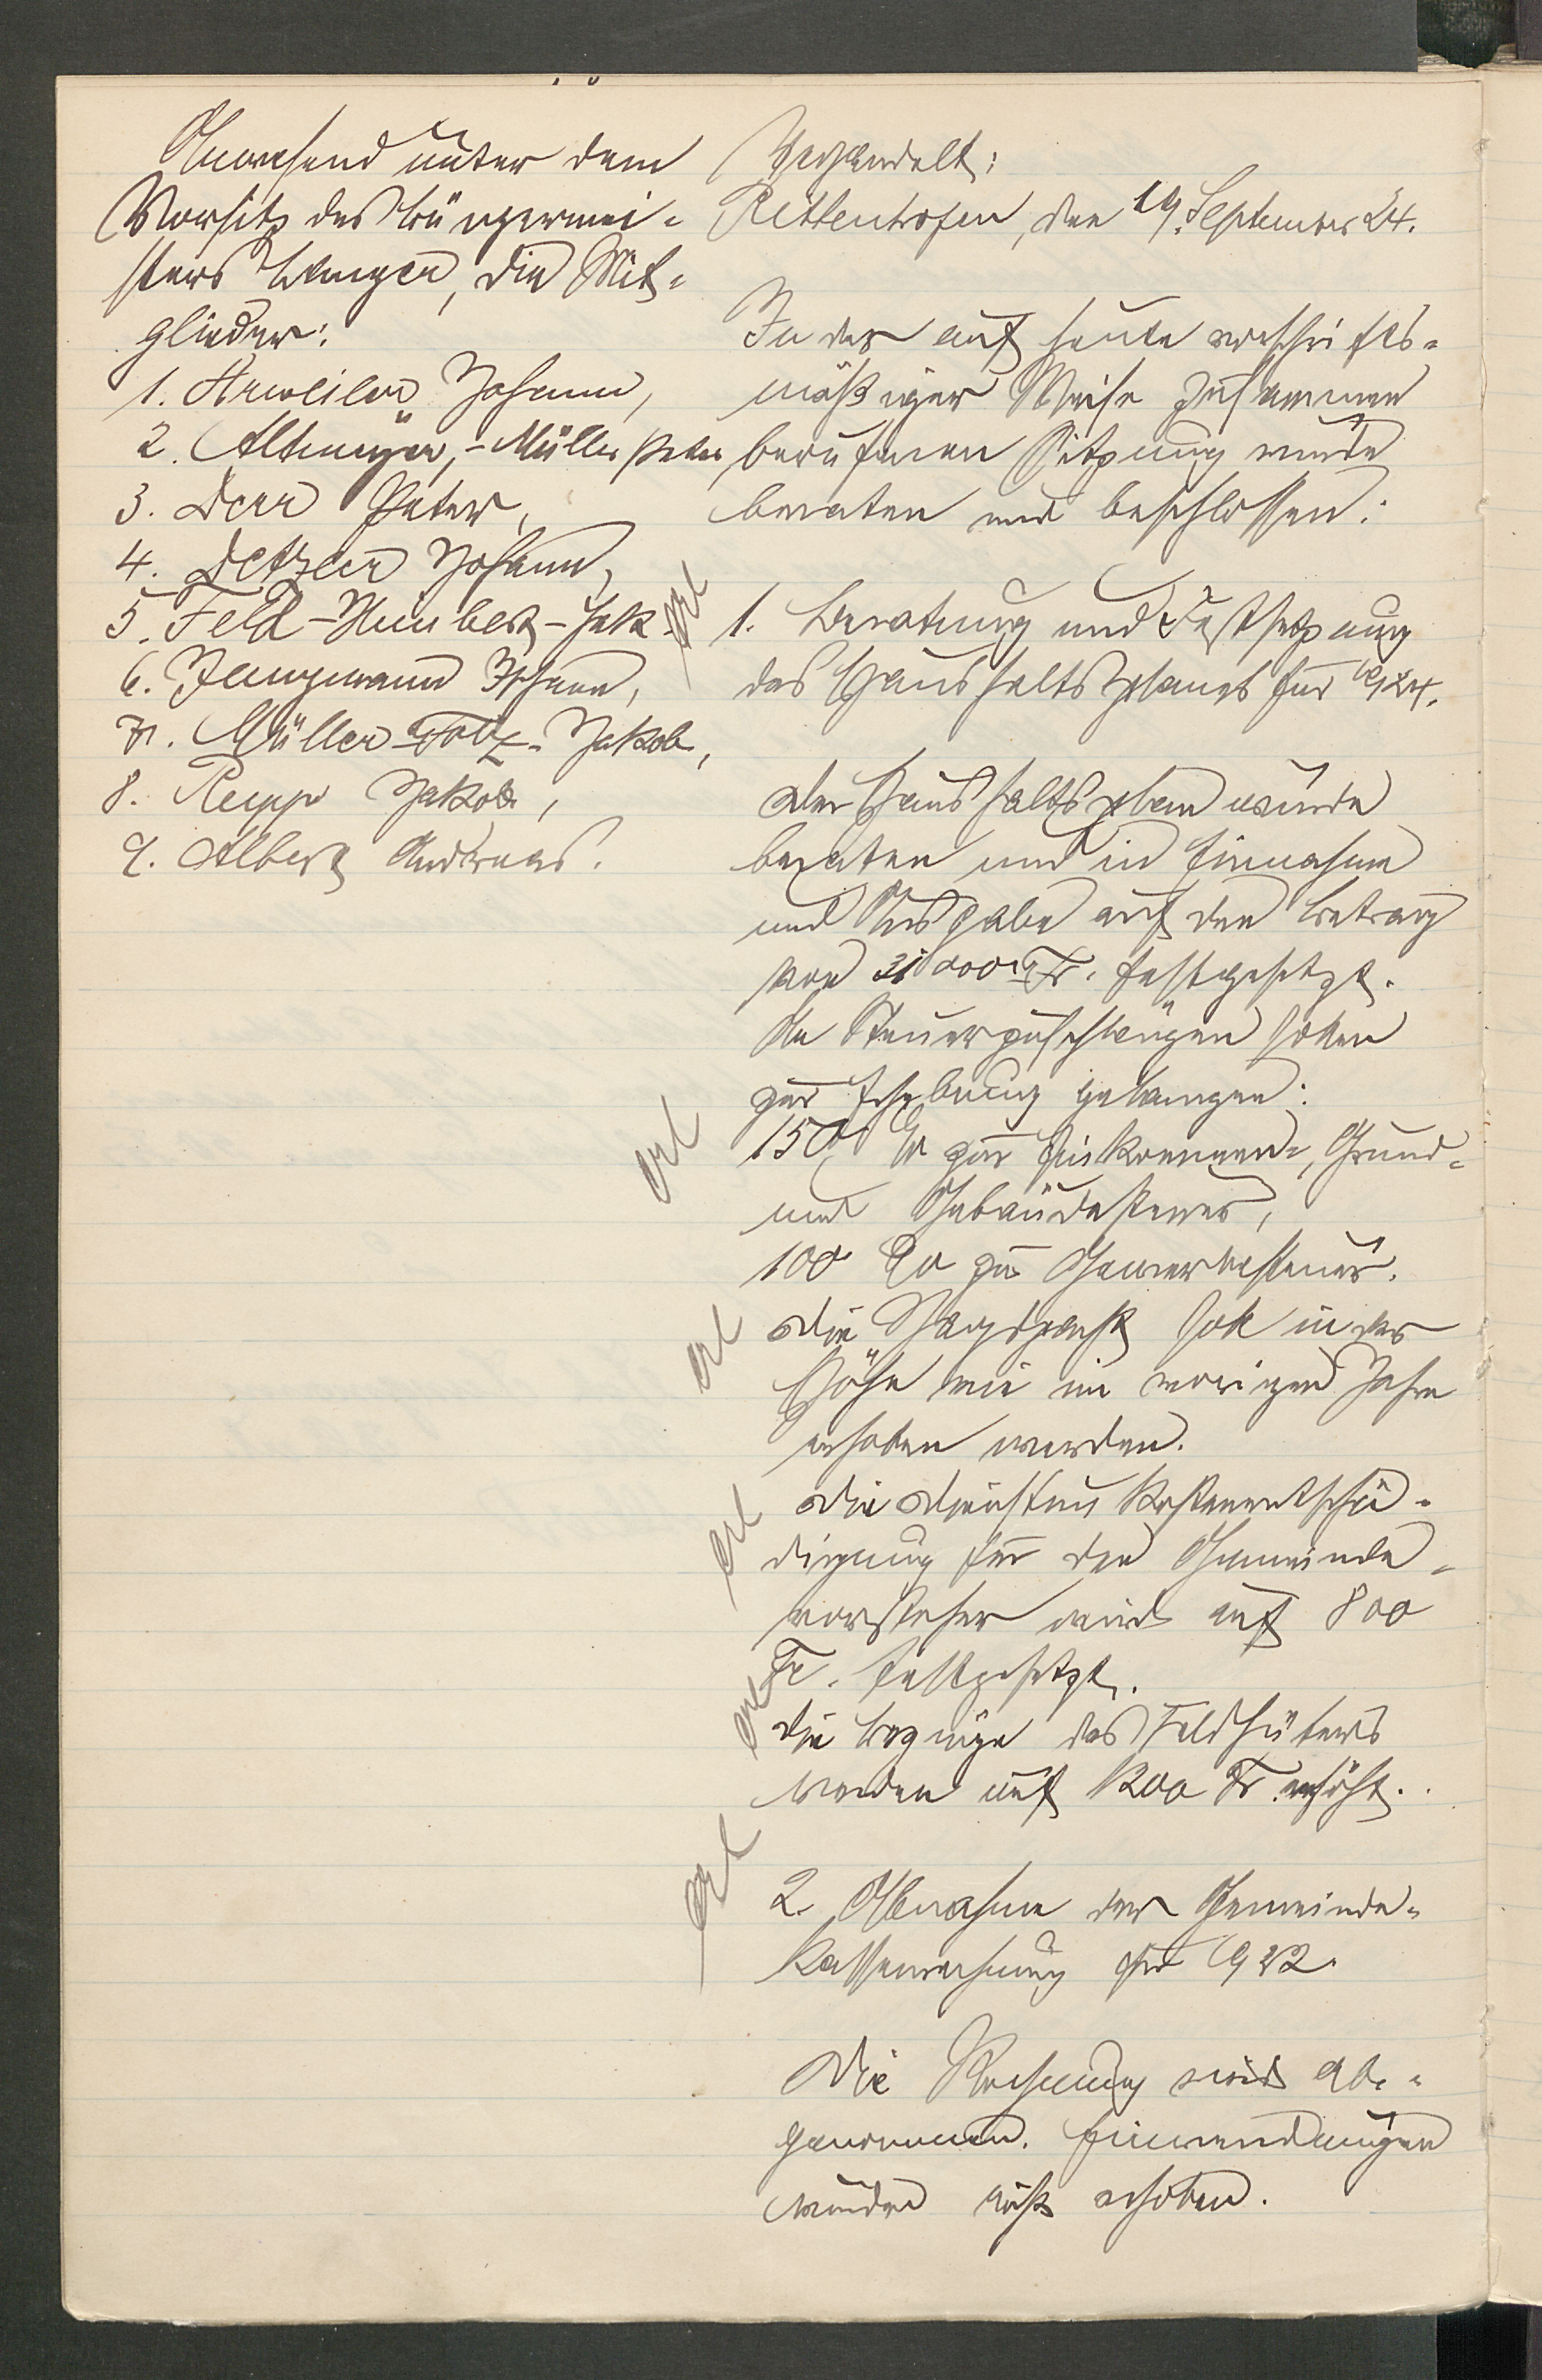 Anwesend unter dem
Vorsitz des Bürgermei-
sters Langer, die Mit-
glieder:
1. Arweiler Johann,
2. Altmeyer-Müller Peter,
3. Derr Peter,
4. Detzler Johann,
5. Feld-Humbert-Jak.
6. Jungmann Johann,
7. Müller-Foltz-Jakob,
8. Rupp Jakob,
9. Albert Andreas.
Verhandelt:
Rettenhofen, den 19. September 24.
In der auf heute vorschrifts-
mäßiger Weise zusammen
berufenen Sitzung wurde
beraten und beschlossen:
erl
1. Beratung und Festsetzung
des Haushaltsplanes für 1924.
Der Haushaltsplan wurde
beraten und in Einnahme
und Ausgabe auf den Betrag
von 31000 Fr. festgesetzt.
An Steuerzuschlägen sollen
zur Erhebung gelangen:
erl
150 % zur Einkommen-, Grund-
und Gebäudesteuer,
100 % zur Gewerbesteuer.
erl
Die Jagdpacht soll in der
Höhe wie im vorigen Jahre
erhoben werden.
erl
Die Dienstunkostenentschä-
digung für den Gemeinde-
vorsteher wird auf 800
Fr. festgesetzt.
erl
Die Bezüge des Feldhüters
werden auf 1200 Fr. erhöht.
erl
2. Abnahme der Gemeinde-
kassenrechnung für 1922.
Die Rechnung wird ab-
genommen. Einwendungen
wurden nicht erhoben.